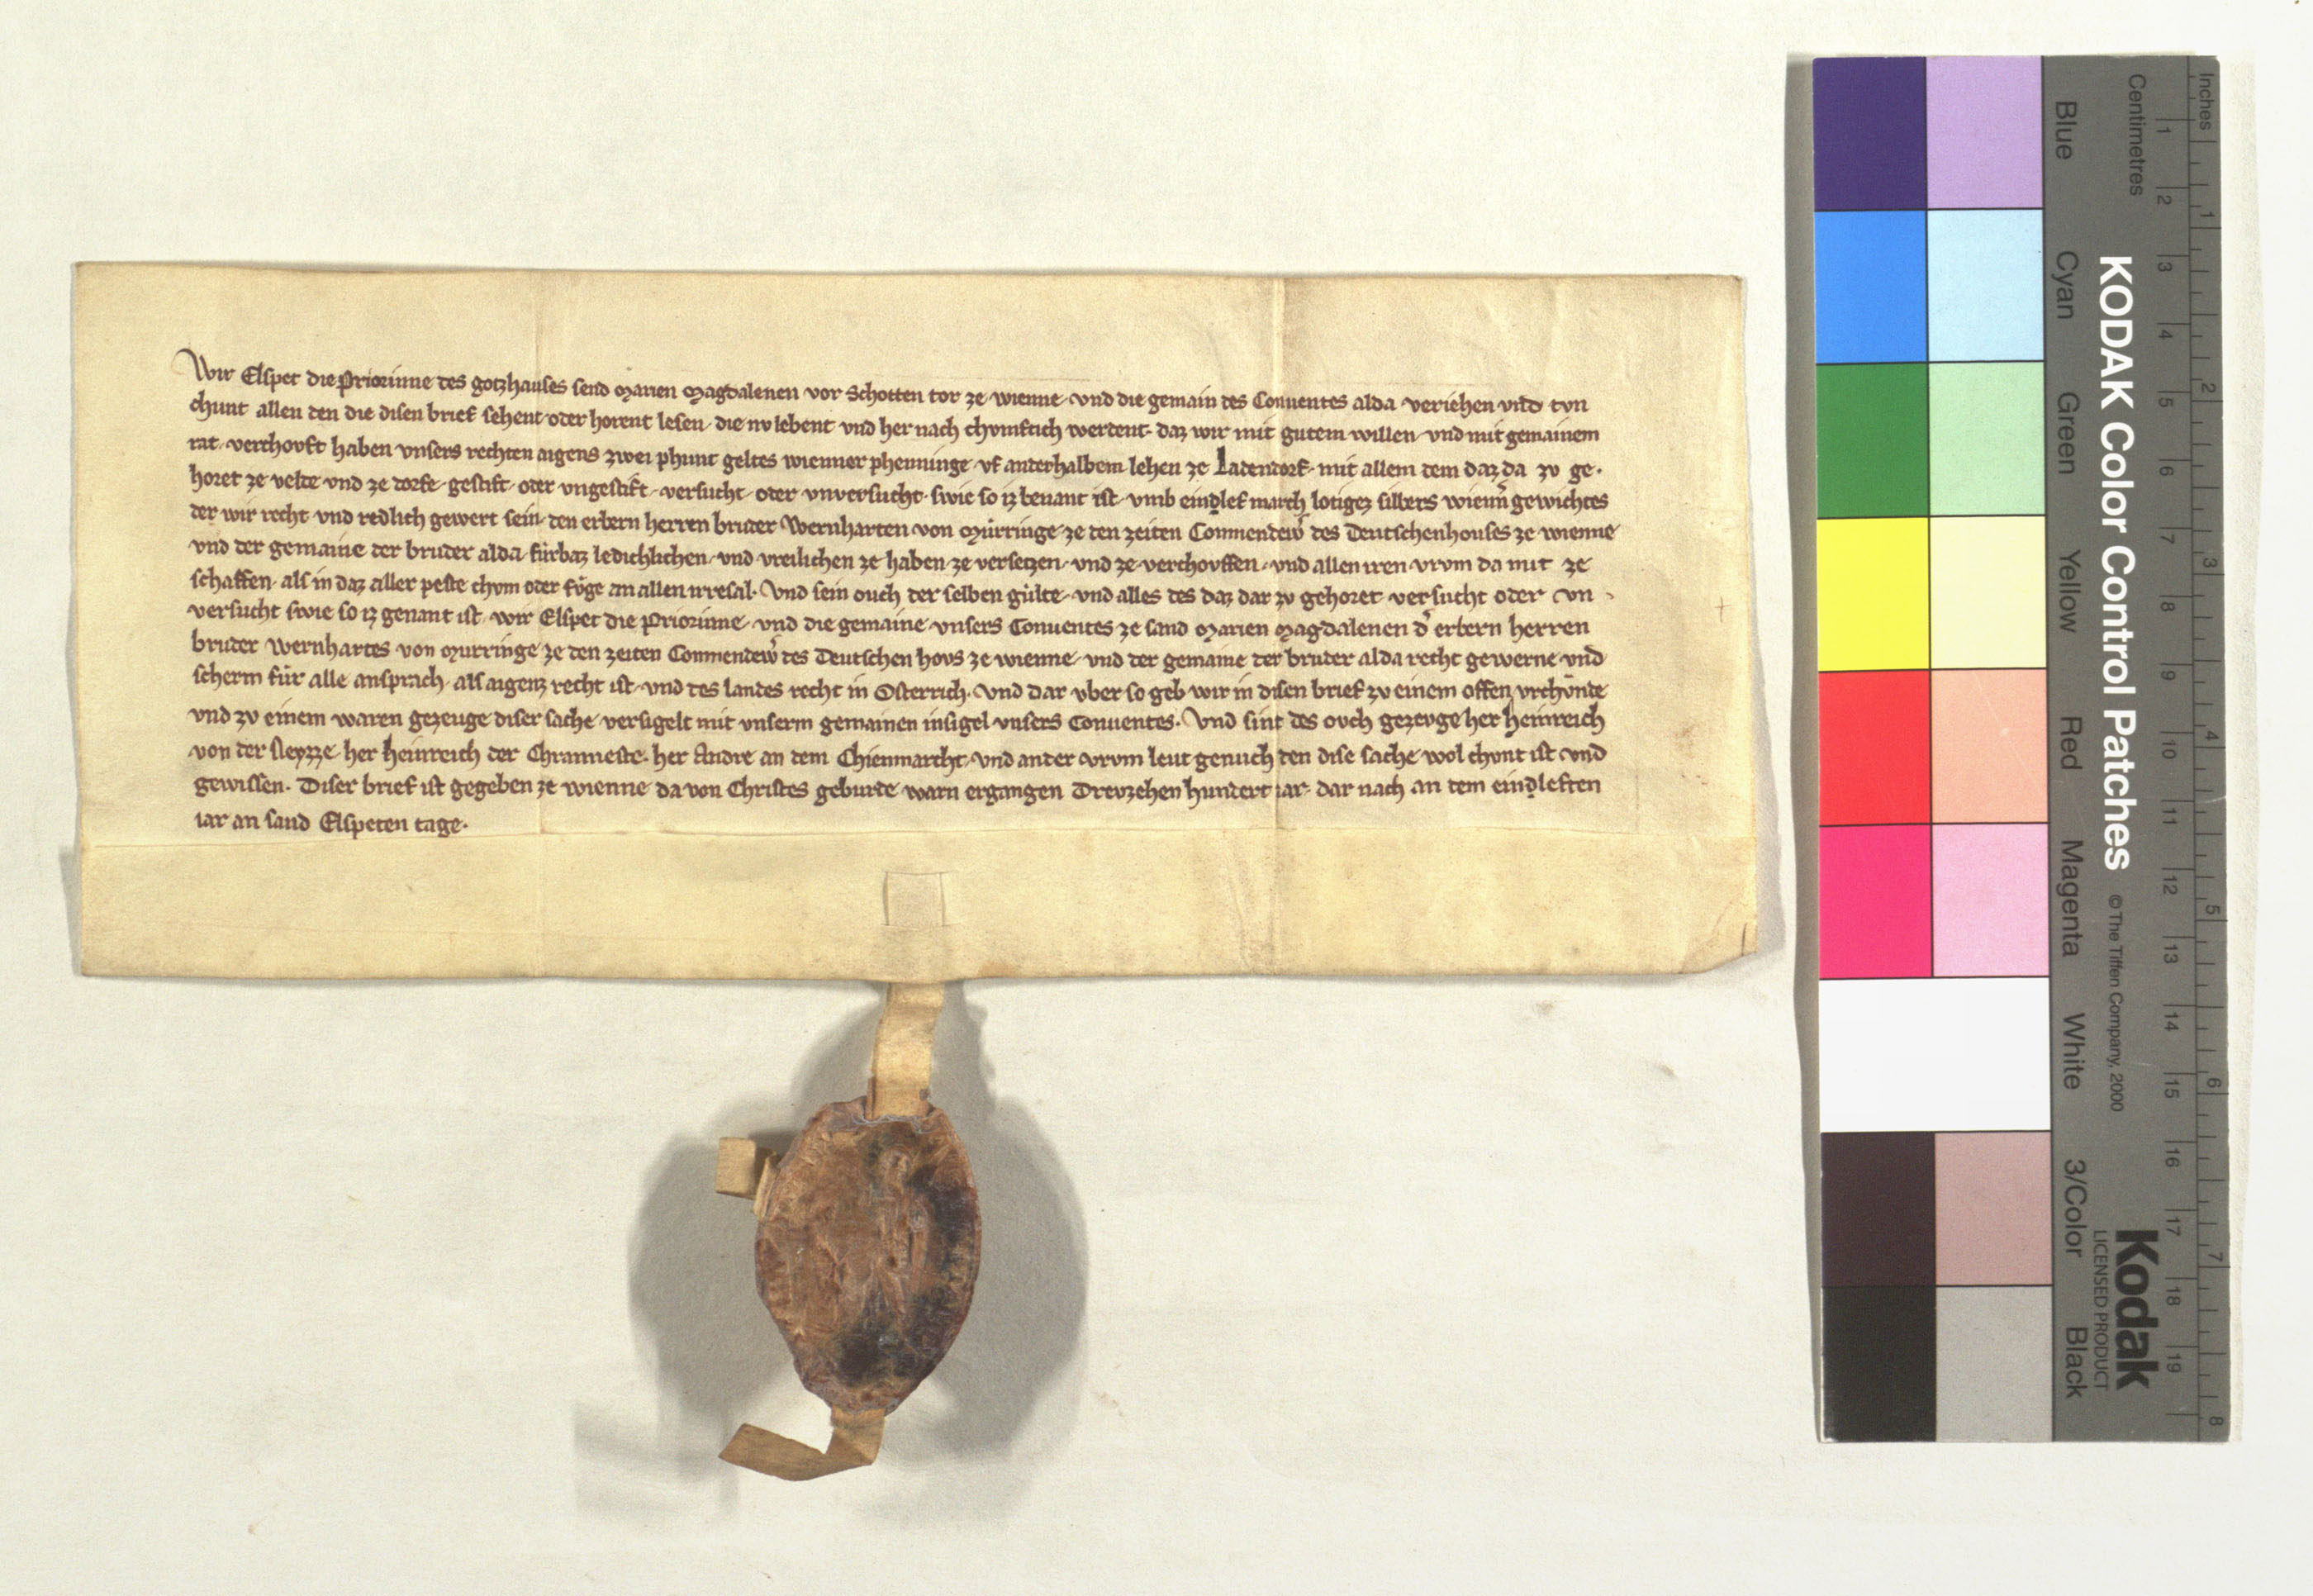 Wir Elspet die Priorinne des gotzhauses send Marien Magdalenen vor Schotten tor ze wienne und die gemain des Conuentes alda veriehen vnd tvn
chunt allen den die disen brief sehent oder horent lesen die nv lebent vnd her nach chvmftich werdent daz wir mit gutem willen vnd mit gemainem
rat verchovft haben vnsers rechten aigens zwei phunt geltes wienner phenninge vf anderhalbem lehen ze Ladendorf mit allem dem daz da zv ge·
horet ze velde vnd ze dorfe gestift oder vngestift versucht oder vnversucht swie so iz benant ist vmb eindlef march lotigez silbers wienn̄ gewichtes
der wir recht vnd redlich gewert sein den erbern herren bruder Wernharten von Mürringe ze den zeiten Commendew̄ des Deutschenhouses ze wienne
vnd der gemaine der bruder alda fürbaz ledichlichen vnd vreilichen ze haben ze versetzen vnd ze verchovffen vnd allen iren vrvm da mit ze
schaffen als in daz aller peste chvm oder fvͦge an allen irresal· Vnd sein ouch der selben gülte vnd alles des daz dar zv gehoret versucht oder vn
versucht swie so iz genant ist wir Elspet die Priorinne vnd die gemaine vnsers Conuentes ze sand Marien Magdalenen d̄ erbern herren
bruder Wernhartes von Murringe ze den zeiten Commendew̄ des Deutschen hovs ze wienne vnd der gemaine der bruder alda recht gewerne vnd
scherm für alle ansprach als aigenz recht ist vnd des landes recht in Osterrich· Vnd dar vber so geb wir in disen brief zv einem offen vrchvnde
vnd zv einem waren gezeuge diser sache versigelt mit vnserm gemainen insigel vnsers Conuentes· Vnd sint des ovch gezevge her Heinreich
von der Neyzze her Heinreich der Chranneste her Andre an dem Chienmarcht vnd ander vrvm leut genuch den dise sache wol chvnt ist vnd
gewissen· Diser brief ist gegeben ze wienne da von Christes geburde warn ergangen Drevzehen hundert iar dar nach an dem eindleften
iar an sand Elspeten tage·
Inches
Centimetres
1 2 3 4 5 6 7 8 9 10 11 12 13 14 15 16 17 18 19
1 2 3 4 5 6 7 8
KODAK Color Control Patches
© The Tiffen Company, 2000
Kodak
LICENSED PRODUCT
Blue
Cyan
Green
Yellow
Red
Magenta
White
3/Color
Black